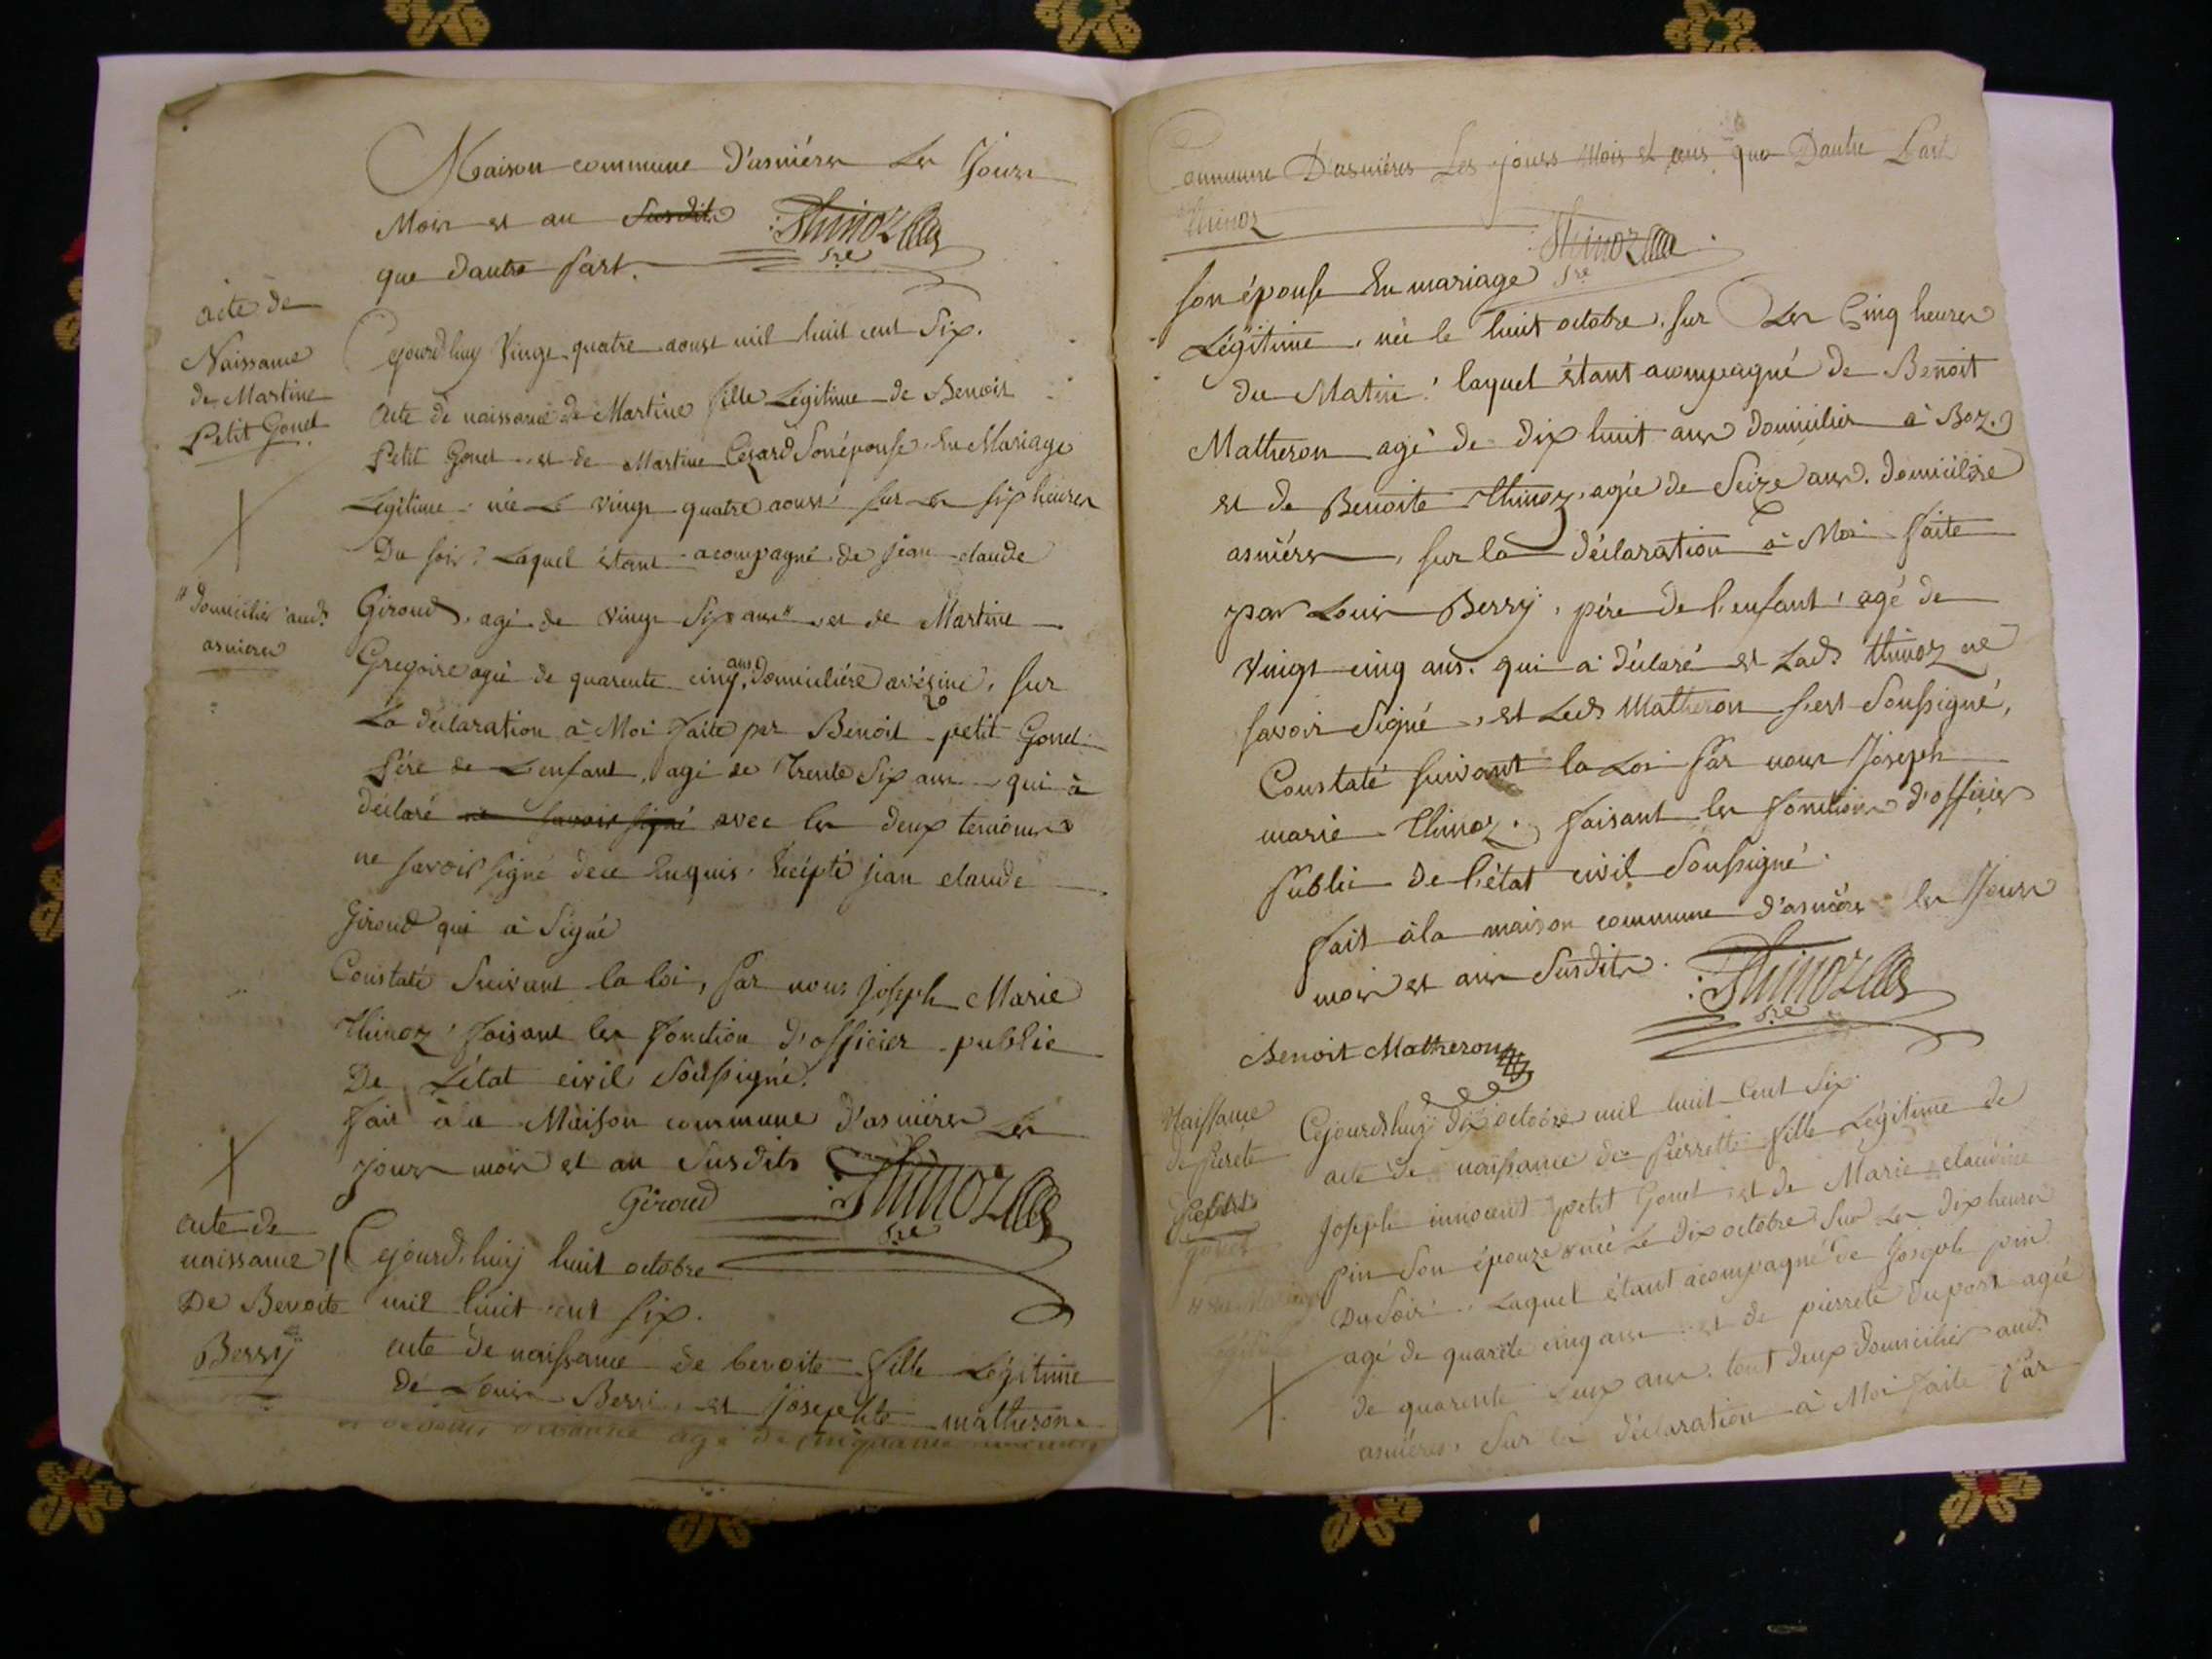 Maison commune d'asniéres Les Jours
Mois et an Susdits Thinoz
sre
que dautre part.
acte de
Naissance
de Martine
Petit Gonet
Cejourd'huy Vingt quatre aoust mil huit cent Six.
Acte de naissance de Martine fille Légitime de Benoit
Petit Gonet et de Martine Cezard Son épouse En Mariage
Légitime née Le vingt quatre aoust sur Les six heures
Du soir. Laquel étant acompagné de jean claude
" domicilier aud.
asnieres
Giroud, agé de vingt Six ans " et de Martine
Gregoire agée de quarente cinq ans, Domiciliére avésine, sur
La déclaration à Moi faite par Benoit petit Gonet
Pére de L'enfant, agé de Trente Six ans qui à
déclaré ne savoir signé avec les deux temoins
ne savoir signé dece Enquis, Excépté jean claude
Giroud qui à Signé
Constaté Suivant la loi, Par nous Joseph Marie
Thinoz, faisant les fonction d'officier public
De L'état civil Soussigné.
Fait à la Maison commune d'asniéres Les
jours mois et an Susdits Thinoz
Giroud
sre
acte de
naissance
De Benoite
Berry
Cejourd'huy huit octobre
mil huit cent six.
acte de naissance de benoite fille Légitime
de Louis Berri, et josephte matheron
agé de cinquante
Commune D'asniéres Les jours Mois et ans que Dautre Part
Thinoz
Thinoz
sre
son épouse En mariage
Légitime, née le huit octobre, sur Les Cinq heures
du Matin: laquel étant acompagné de Benoit
Matheron agé de dix huit ans domicilier à Boz.
et de Benoite Thinoz, agée de Seize ans, domicilière
asniéres, sur la déclaration à Moi faite
par Louis Berry, pére de l'enfant, agé de
vingt cinq ans. qui à déclaré et Lad. thinoz ne
savoir Signé, et Led. Matheron s'est Soussigné,
Constaté suivant la Loi Par nous Joseph
marie Thinoz, faisant les fonction d'officier
Public de l'état civil Soussigné.
fait àla maison commune d'asniéres les Jours
mois et ans Susdits. Thinoz
sre
Benoit Matheron
Naissance
de Pierete
petit
gonet
Cejourd'huy dix octobre mil huit Cent Six.
acte de naissance de Pierrette fille Légitime de
Joseph innocent petit Gonet et de Marie claudine
pin Son épouze née Le Dix octobre Sur Les Dix heures
Du Soir. Laquel étant acompagné de Joseph pin
agé de quarente cinq ans et de pierrete Dupont agée
de quarente deux ans. tout deux Domicilier aud.
asniéres. Sur la déclaration à Moi faite Par